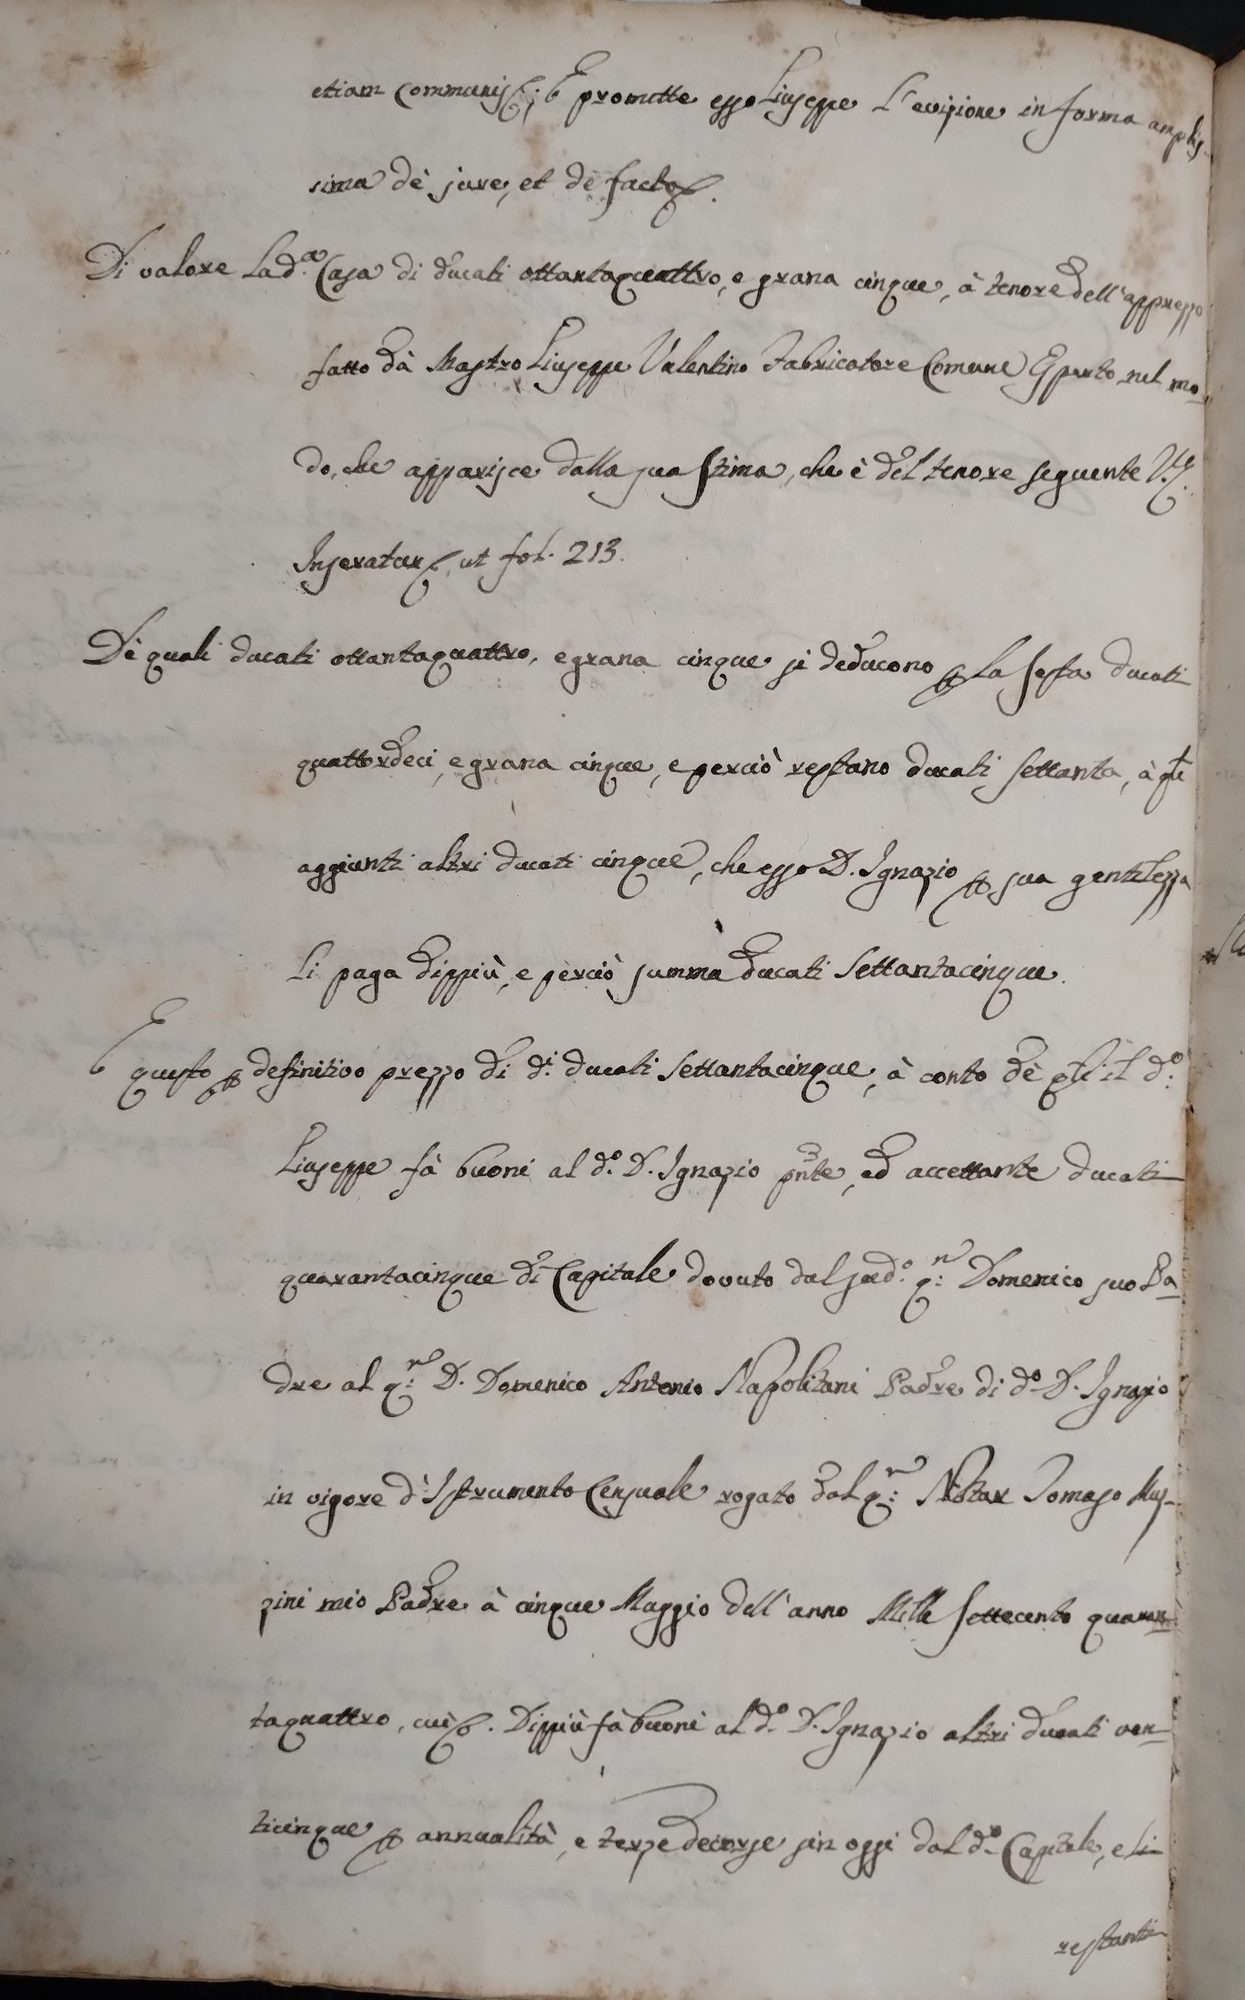 etiam communis; E promette esso Giuseppe l'evizione in forma amplis-
sima dè jure, et dè facto.
Di valore la d.ª Casa di ducati ottantaquattro, e grana cinque, à tenore dell'apprezzo
fatto dà Mastro Giuseppe Valentino Fabricatore Comune Esperto nel mo-
do, che apparisce dalla sua stima, che è del tenore seguente V.t
Inseratur, ut fol. 213.
Dè quali ducati ottantaquattro, e grana cinque si deducono p la sesta ducati
quattordeci, e grana cinque, e perciò restano ducati settanta, à qli
aggiunti altri ducati cinque, che esso D. Ignazio p sua gentilezza
li paga dippiù, e perciò summa ducati settantacinque.
E questo p definitivo prezzo di d.i ducati settantacinque, à conto dè qli il d.º
Giuseppe fà buoni al d.º D. Ignazio pnte, ed accettante ducati
quarantacinque di Capitale dovuto dal sud.º q.m Domenico suo Pa-
dre al q.m D. Domenico Antonio Napolitani Padre di d.º D. Ignazio
in vigore d'Istrumento Censuale rogato dal q.m Notar Tomaso Mus-
zini mio Padre à cinque Maggio dell'anno Mille settecento quaran-
taquattro, cui. Dippiù fà buoni al d.º D. Ignazio altri ducati ven-
ticinque p annualità, e terze decorse sin oggi dal d.º Capitale, e li
restanti